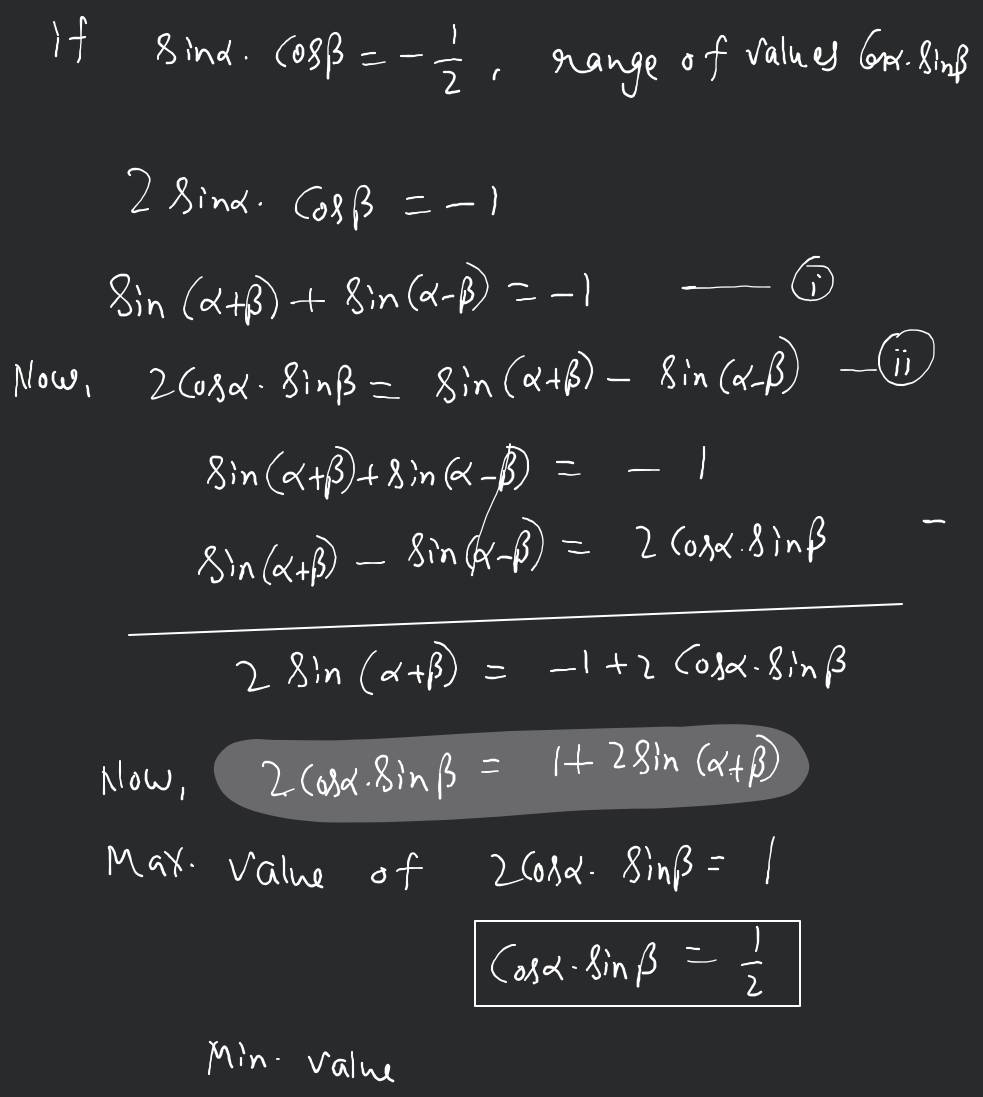 If sinα. cosβ = - 1/2, range of values cosα. sinβ
2 sinα. cosβ = -1
sin (α+β) + sin (α-β) = -1 —— (i)
Now, 2 cosα. sinβ = sin (α+β) - sin (α-β) — (ii)
sin (α+β) + sin (α-β) = - 1
sin (α+β) - sin (α-β) = 2 cosα. sinβ -
2 sin (α+β) = -1 + 2 cosα. sinβ
Now, 2 cosα. sinβ = 1 + 2 sin (α+β)
Max. value of 2 cosα. sinβ = 1
cosα. sinβ = 1/2
Min. value